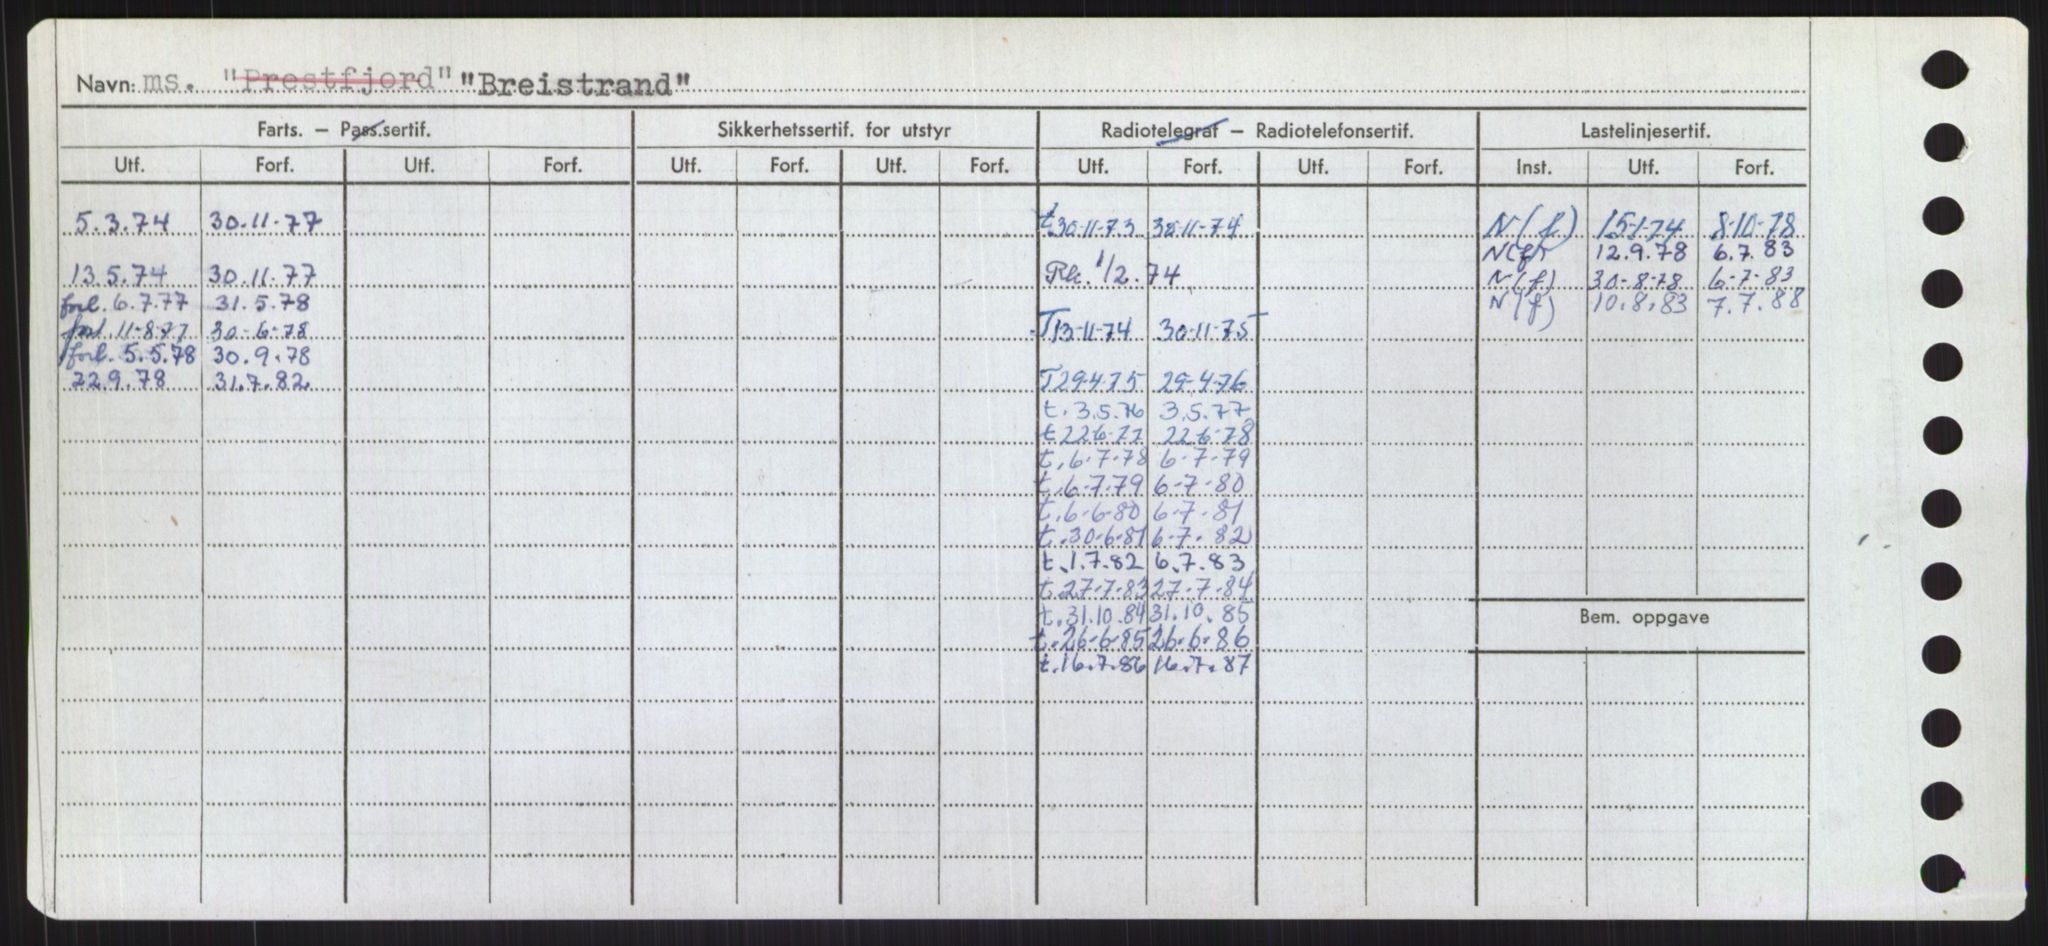 Navn: ms. "Prestfjord" "Breistrand"
Farts. — Pass.sertif. Sikkerhetssertif. for utstyr Radiotelegraf — Radiotelefonsertif. Lastelinjesertif.
Utf. Forf. Utf. Forf. Utf. Forf. Utf. Forf. Utf. Forf. Utf. Forf. Inst. Utf. Forf.
5.3.74 30.11.77
13.5.74 30.11.77
forl. 6.7.77 31.5.78
forl. 11-8.77 30-6-78
forl. 5.5.78 30.9.78
22.9.78 31.7.82
t.30-11-73 30-11-74
Rk. 1/2.74
T13-11-74 30-11-75
T29.4.75 29-4-76
t. 3.5.76 3.5.77
t 22.6-77 22.6-78
t. 6-7-78 6-7-79
t. 6-7.79 6-7-80
t. 6-6-80 6-7-81
t. 30-6-81 6-7-82
t. 1.7.82 6.7.83
t. 27-7-83 27-7-84
t. 31.10.84 31.10.85
t. 26-6-85 26-6-86
t. 16.7.86 16.7.87
N(f) 15-1-74 8-10-78
N(f) 12.9.78 6.7.83
N(f) 30-8-78 6-7-83
N(f) 10.8.83 7.7.88
Bem. oppgave